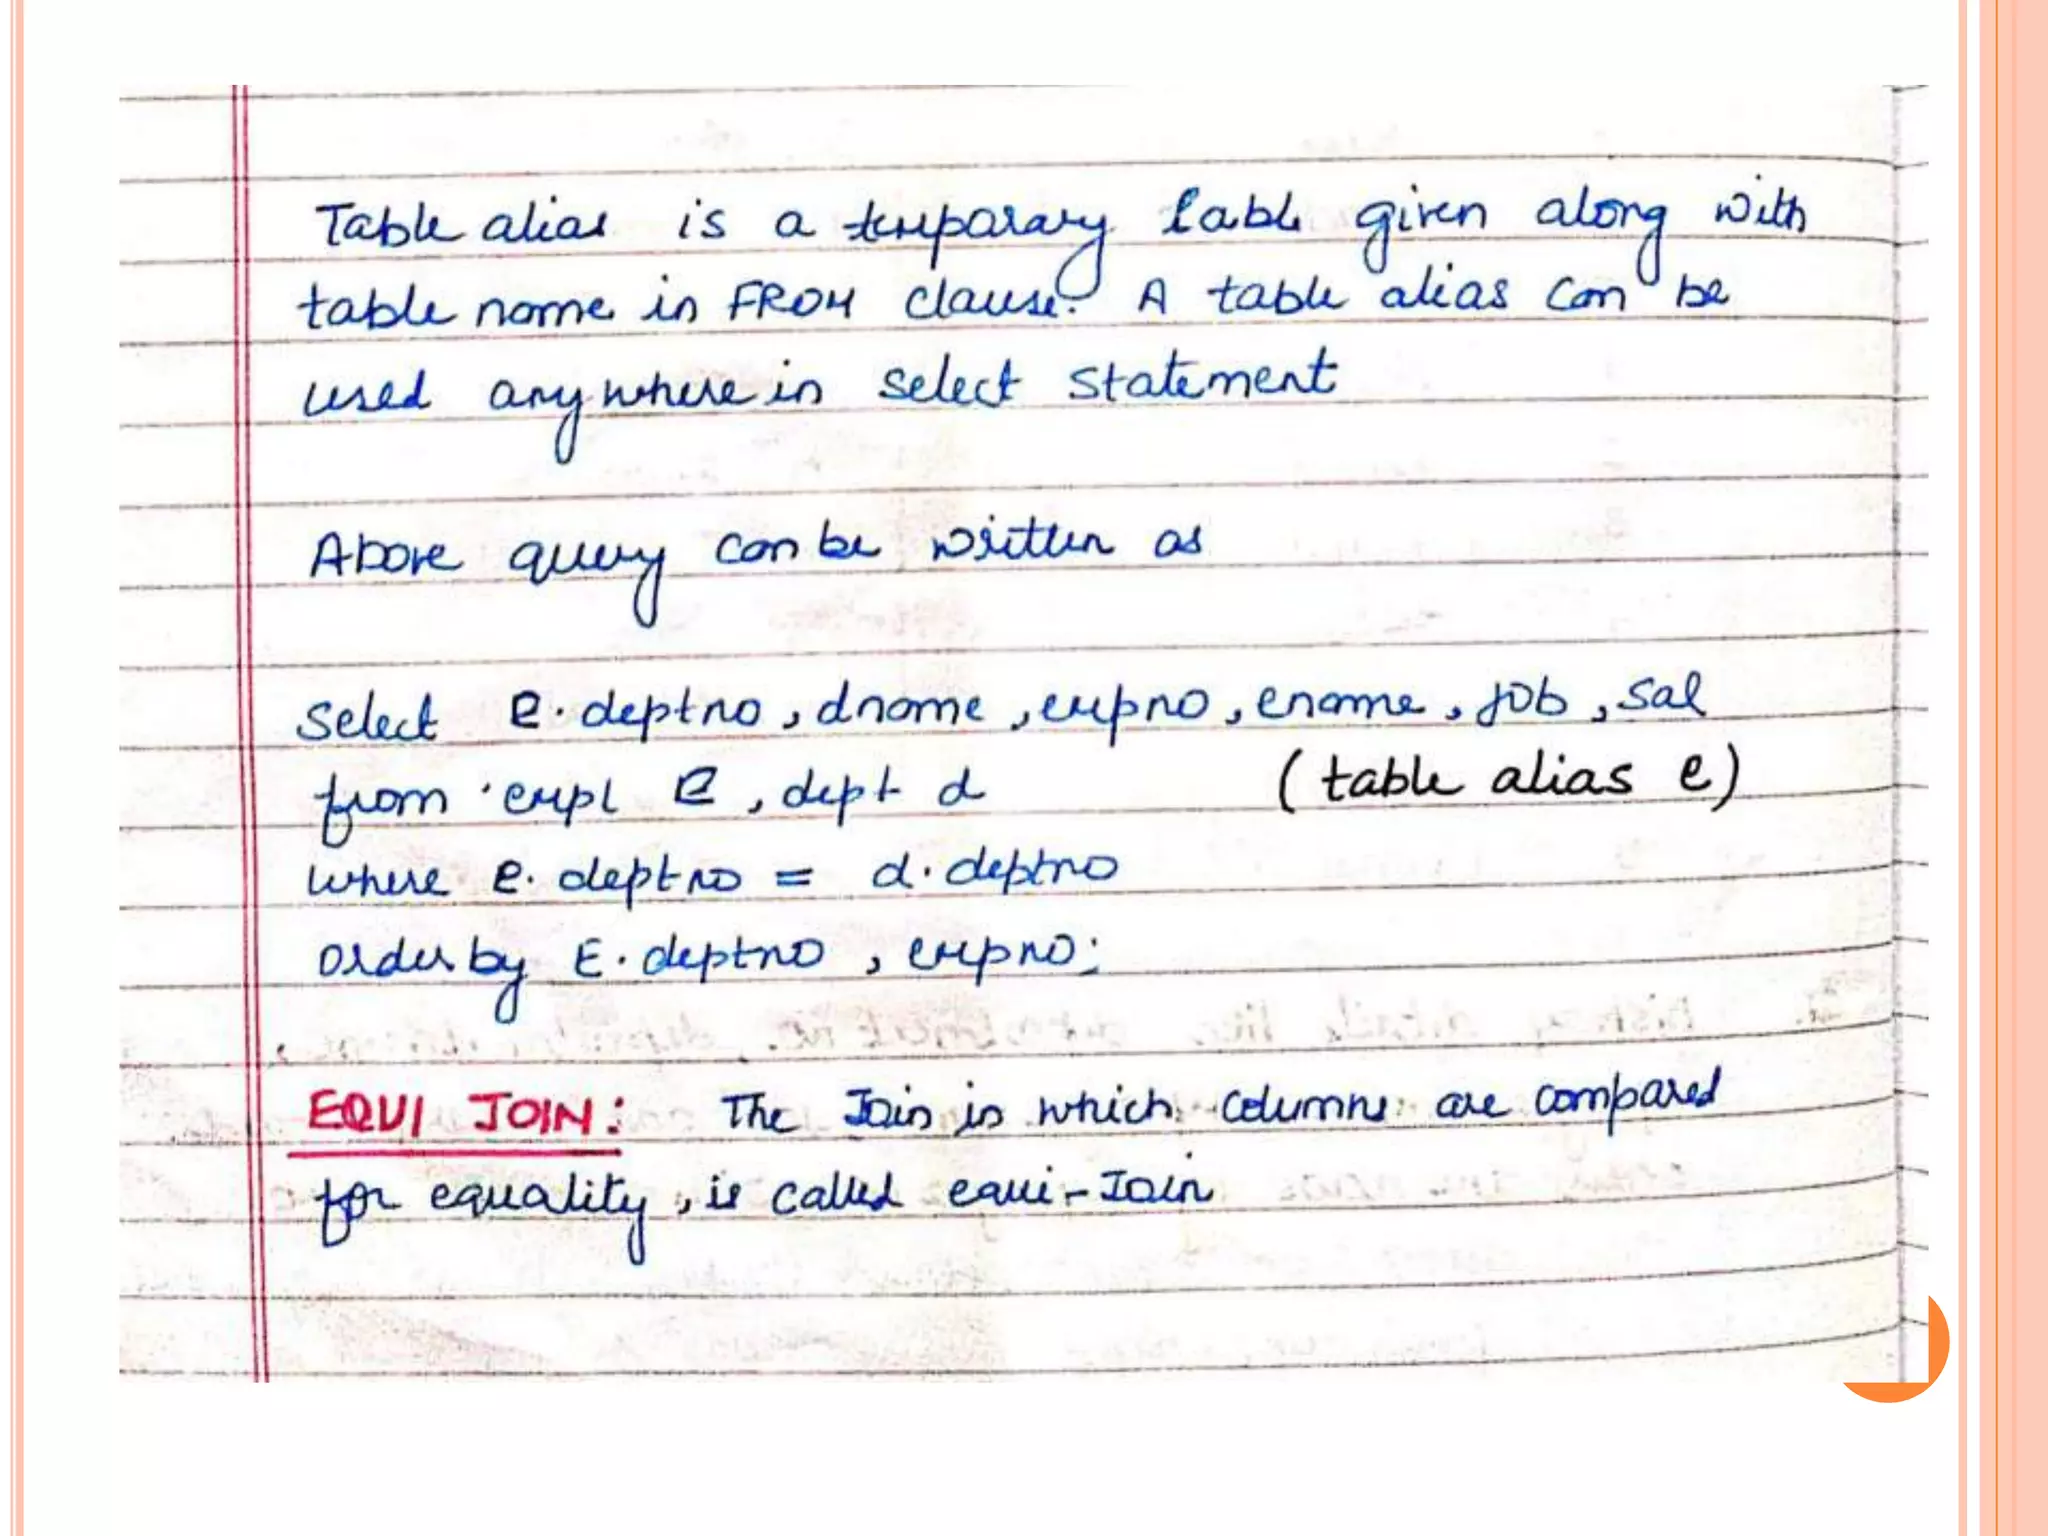 Table alias is a temporary lable given along with
table name in FROM clause. A table alias can be
used anywhere in select statement
Above query can be written as
Select e.deptno, dname, empno, ename, job, sal
from empl e, dept d (table alias e)
where e.deptno = d.deptno
order by E.deptno, empno;
EQUI JOIN: The Join in which columns are compared
for equality, is called equi-Join